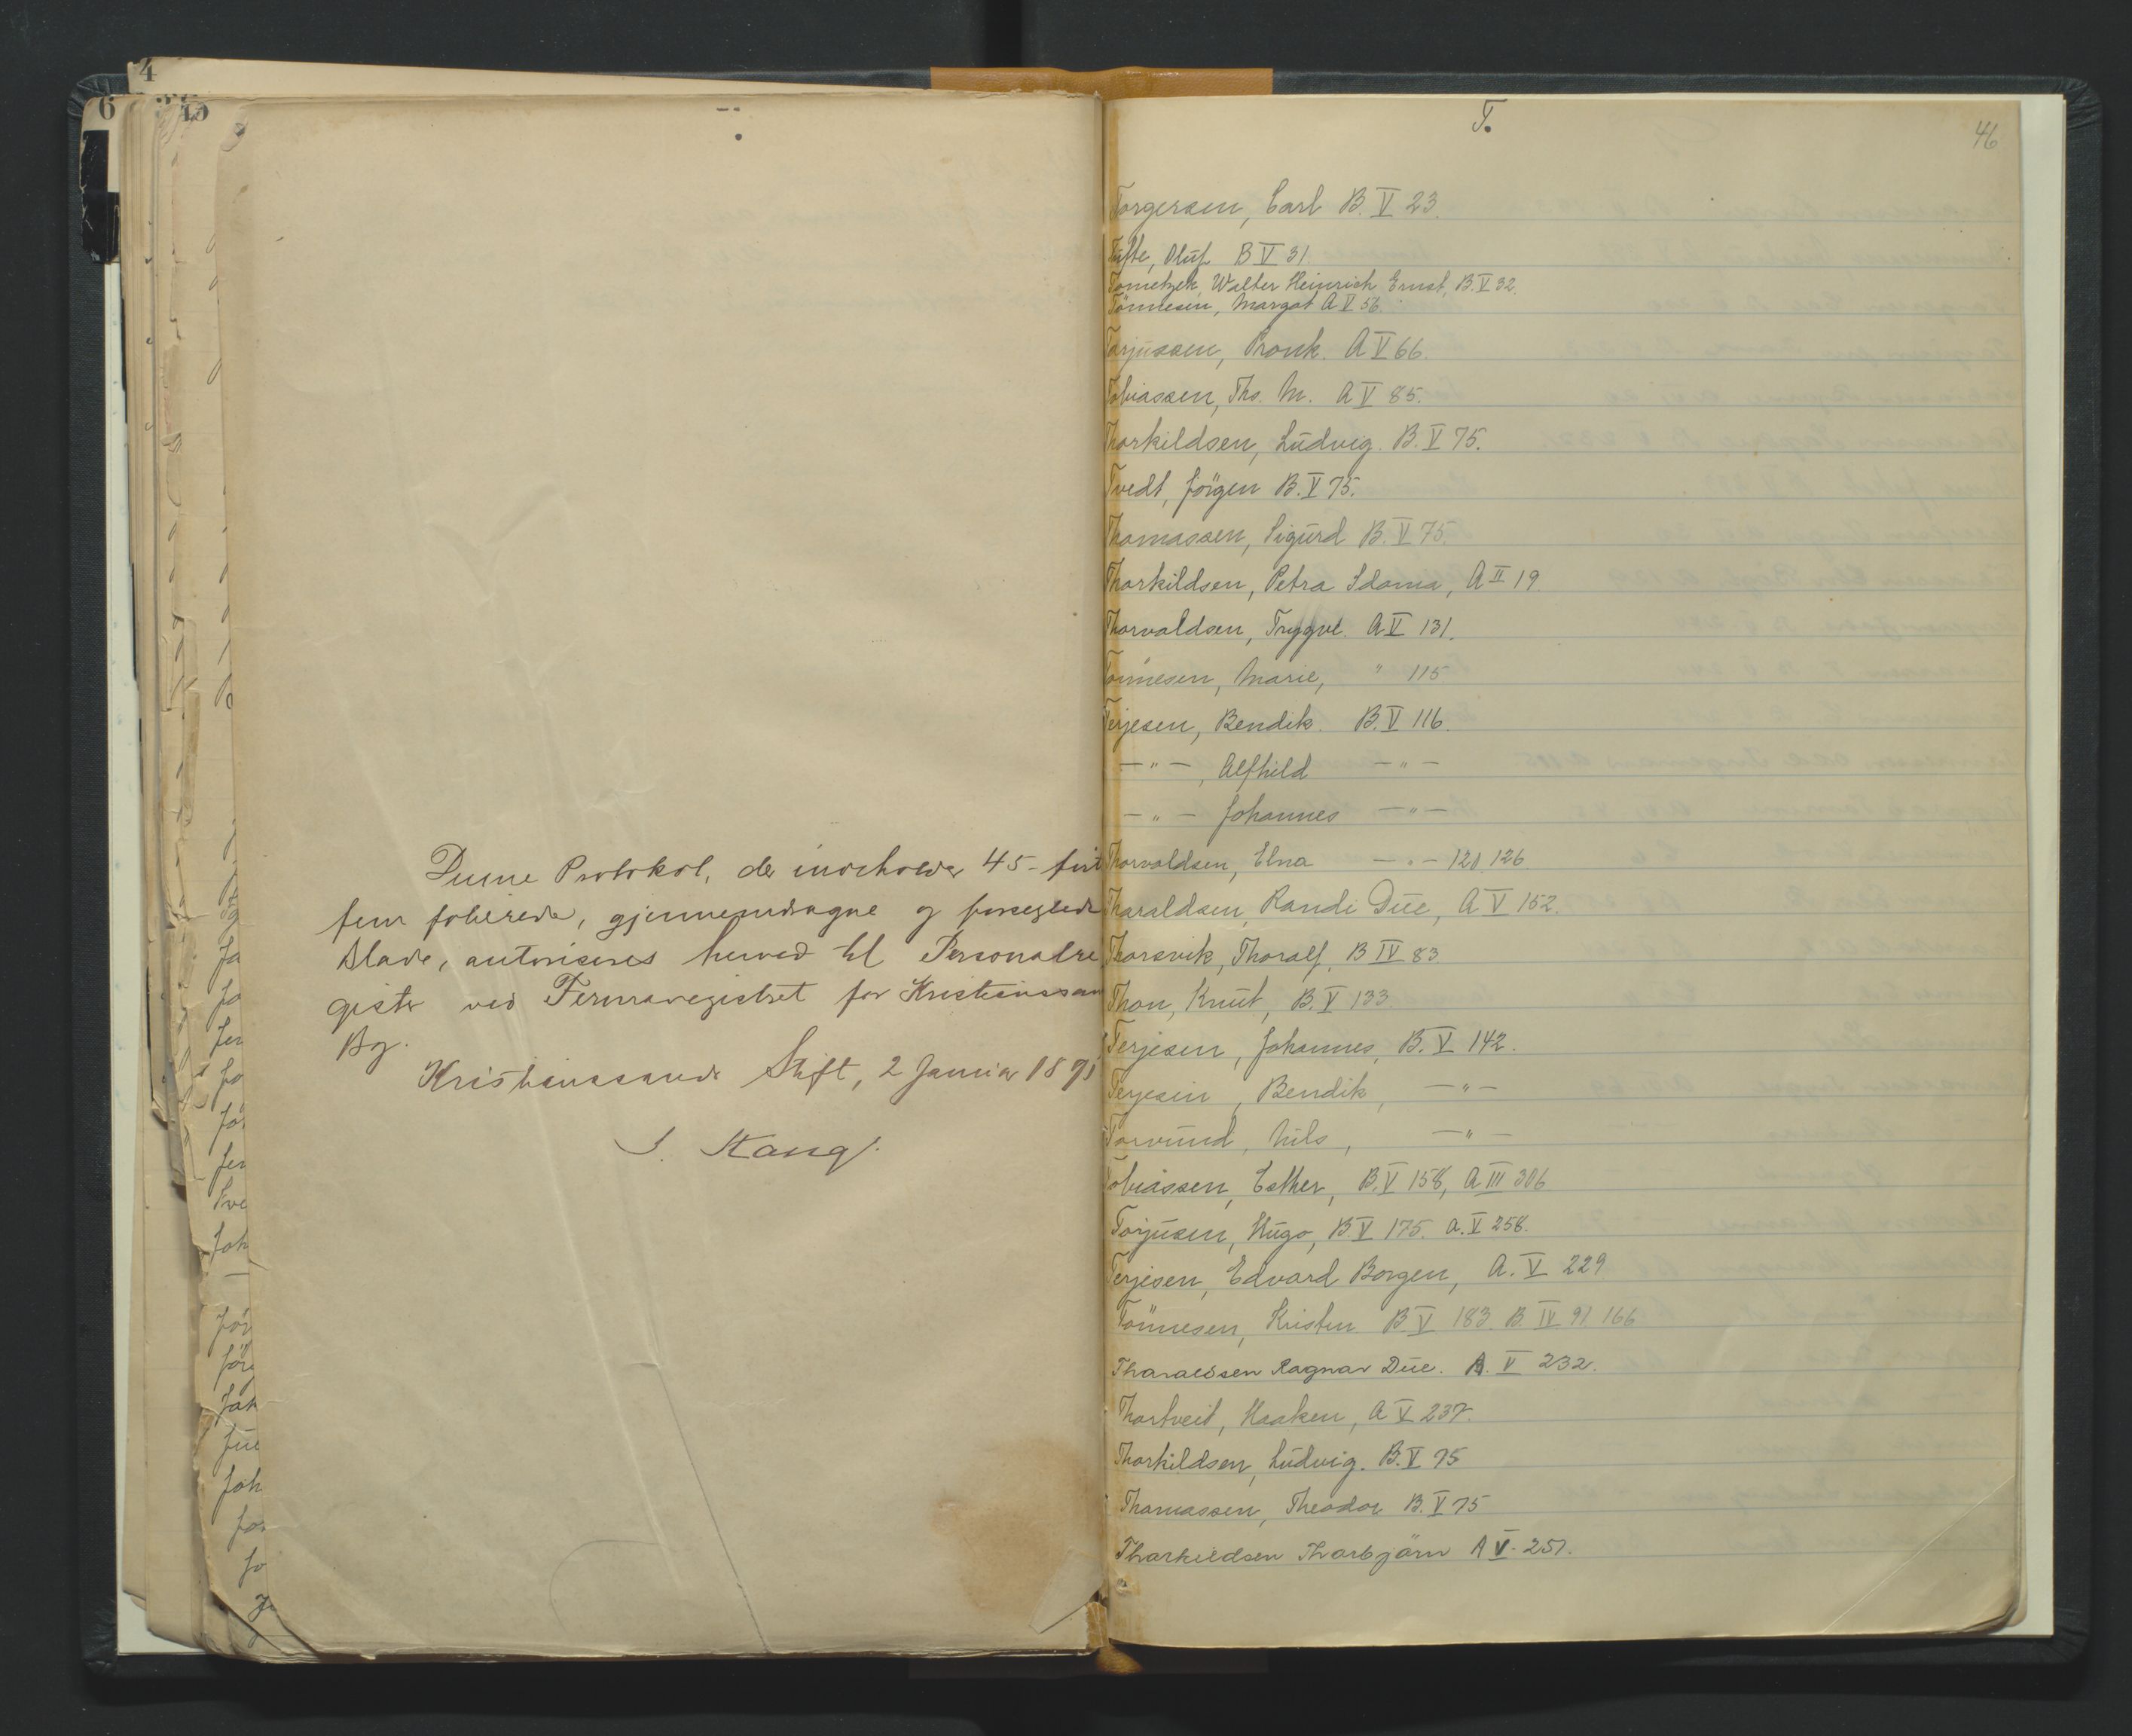 4
6
45
Denne Protokol, der indeholder 45 - firti
fem folierede, gjennemdragne og forseglede
Blade, autoriseres herved til Personalre
gister ved Firmaregistret for Kristianssan
By.
Kristianssands Stift, 2 Januar 1891
S. Stang.
T.
46
Torgersen, Carl B. V 23.
Tufte, Oluf B V 31
Tometzek Walter Heinrich Ernst, B. V 32.
Tönnesen, Margot A V 56.
Tarjussen, Pronk. A V 66.
Tobiassen, Ths. M. A V 85.
Thorkildsen, Ludvig. B. V 75.
Tvedt, Jörgen B. V 75.
Thomassen, Sigurd B. V 75.
Thorkildsen, Petra Idama, A II 19
Thorvaldsen, Trygve. A V 131.
Tönnesen, Marie, " 115
Terjesen, Bendik. B. V 116.
— " —, Alfhild — " —
— " — Johannes — " —
Thorvaldsen, Elna — " — 120, 126.
Tharaldsen, Randi Due, A V 152.
Thorsvik, Thoralf, B IV 83
Thon, Knut, B. V 133.
Terjesen, Johannes, B. V 142.
Terjesen, Bendik, — " —
Torvund, Nils, — " —
Tobiassen, Esther, B. V 158, A III 306
Torjusen, Hugo, B. V 175. A. V 258.
Terjesen, Edvard Borgen, A. V 229
Tönnesen, Kristen B V 183. B. IV 91 166
Tharaldsen Ragnar Due. A. V 232.
Thortveit, Haaken, A V 237.
Thorkildsen, Ludvig. B. V 75
Thomassen, Theodor B. V 75
Thorkildsen Thorbjörn A V. 251.